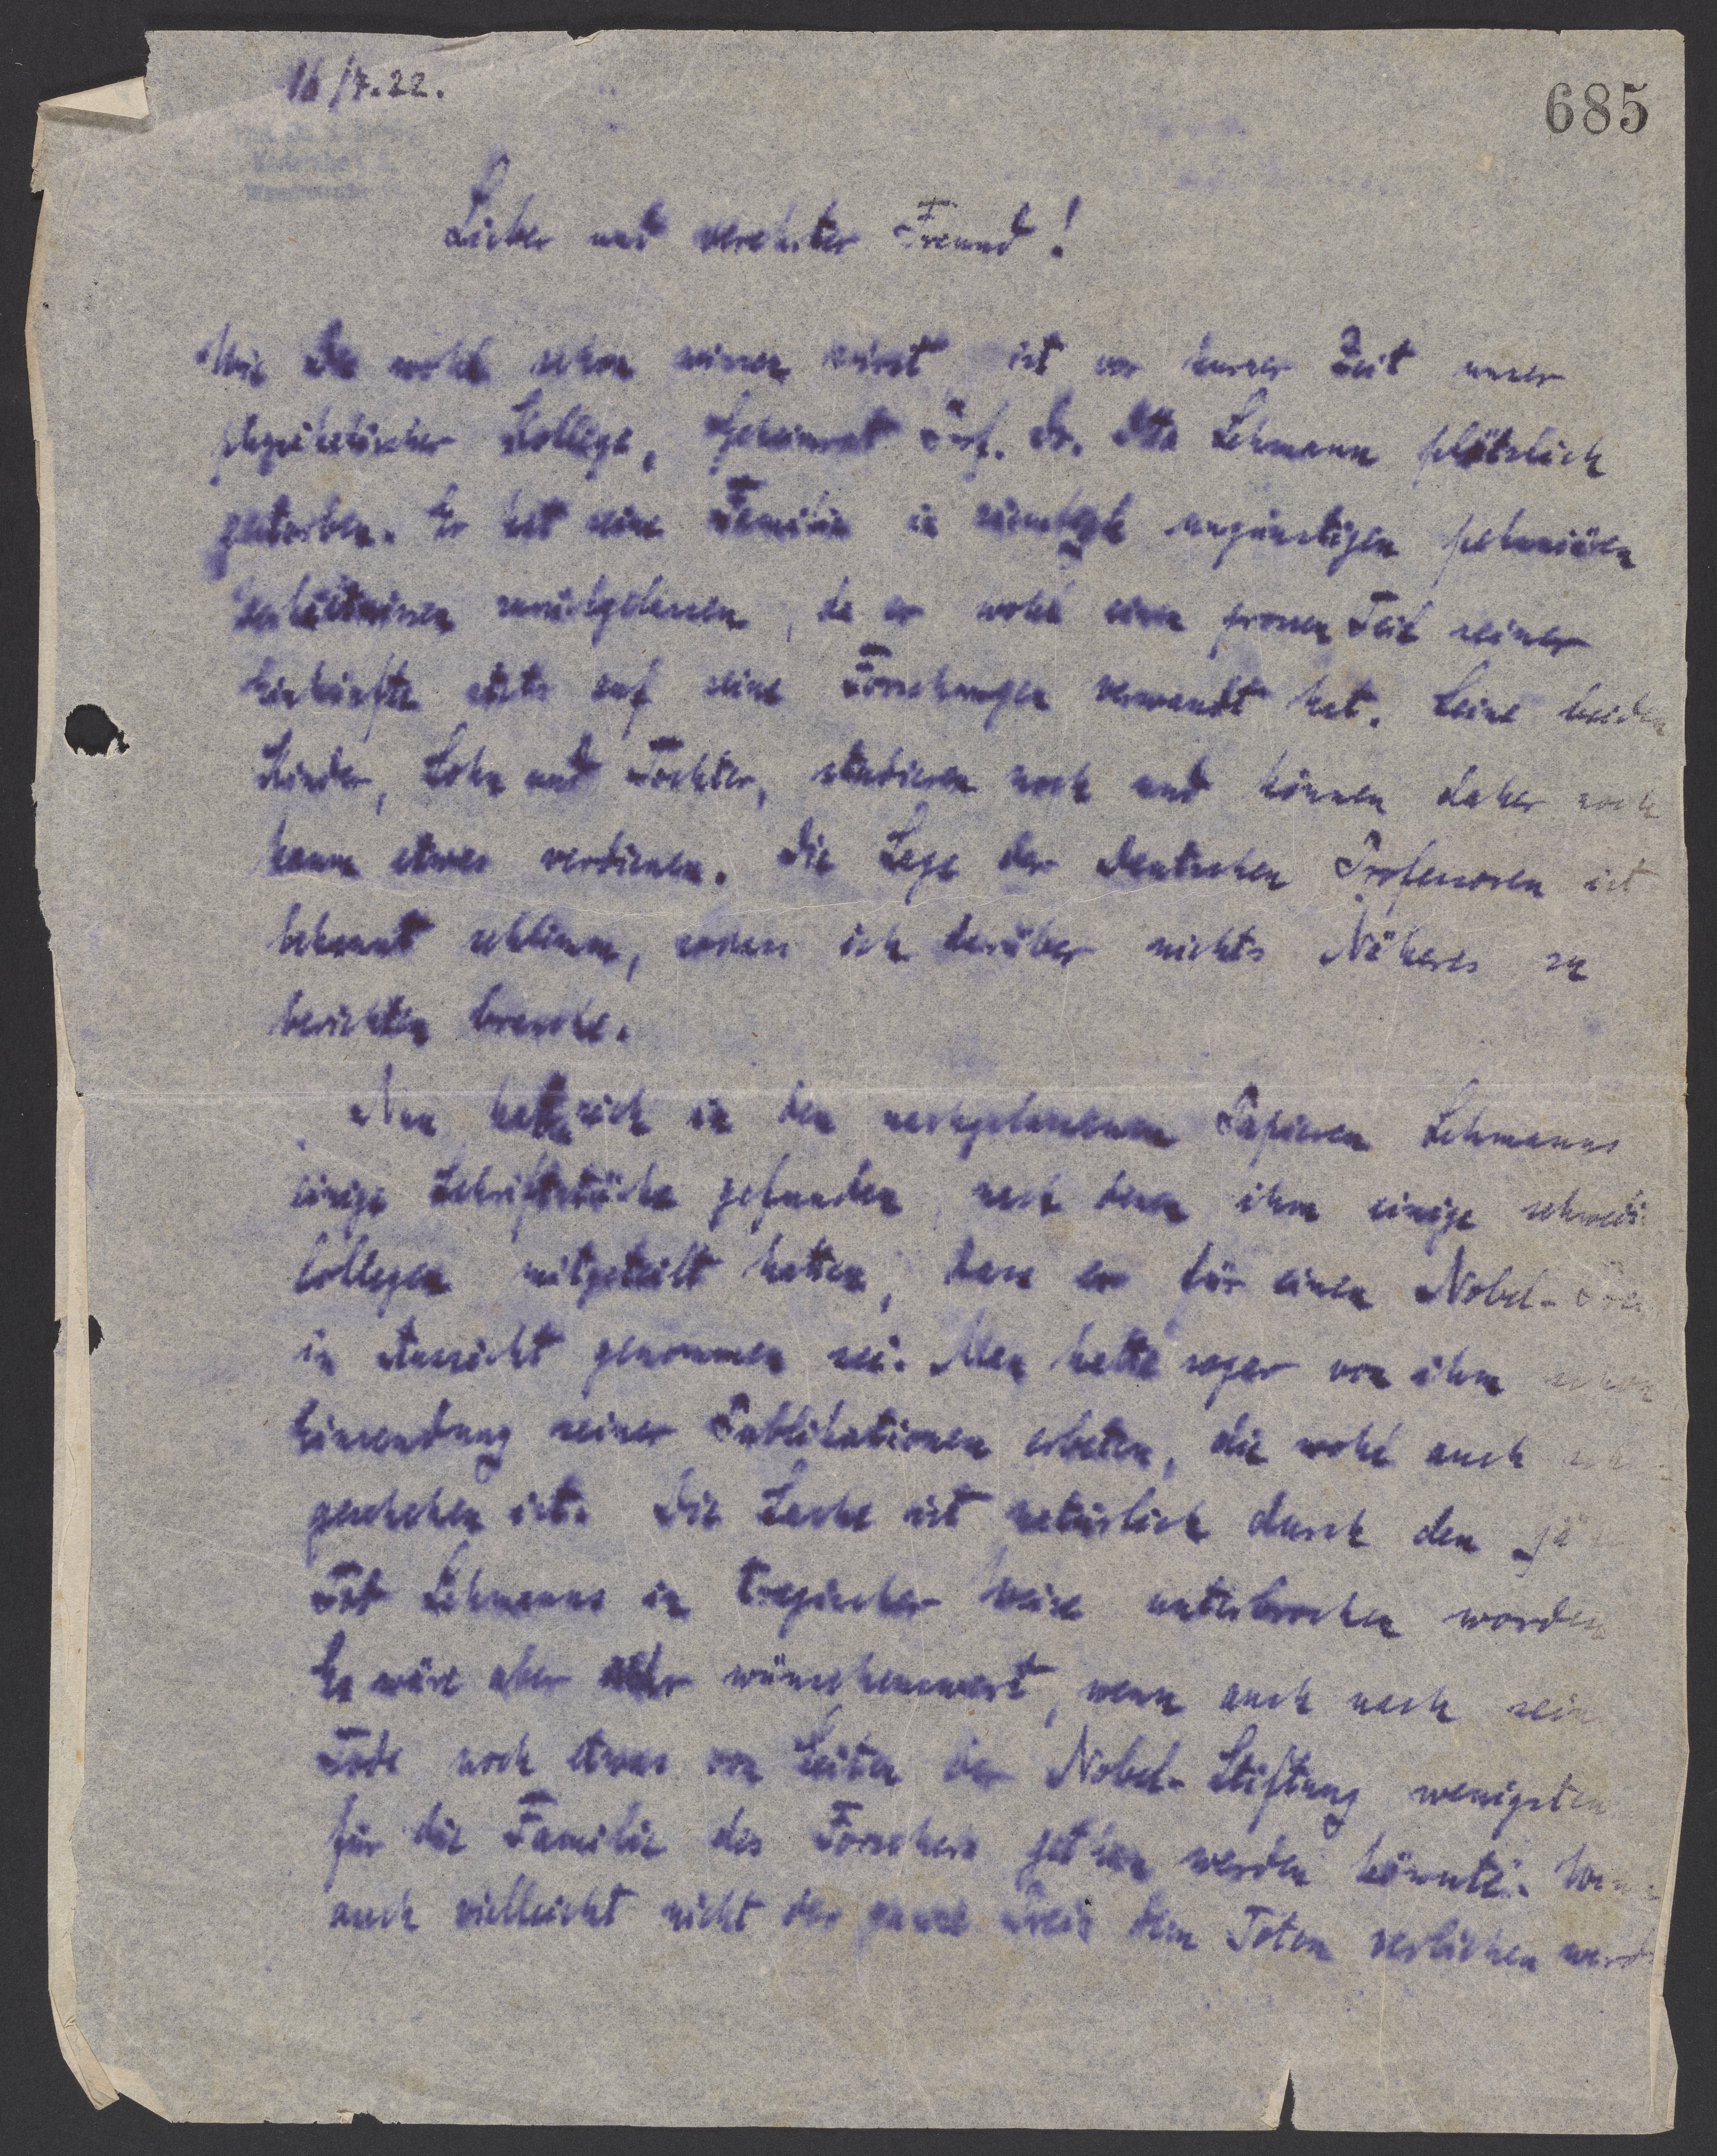 16/7.22.
685
Lieber und verehrter Freund!
Wie Du wohl schon wissen wirst ist vor kurzer Zeit unser
physikalischer Kollege, Geheimrat Prof. Dr. Otto Lehmann plötzlich
gestorben. Er hat seine Familie in ungünstigen pekuniären
Verhältnissen zurückgelassen, da er wohl einen grossen Teil seiner
Einkünfte stets auf seine Forschungen verwandt hat. Seine beiden
Kinder, Sohn und Tochter, studieren noch und können daher noch
kaum etwas verdienen. Die Lage der Deutschen Professoren ist
bekannt schlimm, sodass ich darüber nichts Näheres zu
berichten brauche.
Nun hatte sich in den nachgelassenen Papieren Lehmanns
einige Schriftstücke gefunden, nach denen ihm einige schwedi
Collegen mitgeteilt hatten, dass er für einen Nobel-Prei
in Aussicht genommen sei. Man hatte sogar von ihm schon
Einsendung seiner Publikationen erbeten, die wohl auch
geschehen ist. Die Sache ist natürlich durch den jä
Tot Lehmanns in tragischer Weise unterbrochen worden
Es wäre aber sehr wünschenswert, wenn auch nach sein
Tode noch etwas von Seiten der Nobel-Stiftung wenigsten
für die Familie des Forschers getan werden könnte. Wenn
auch vielleicht nicht der ganze Preis dem Toten verliehen werd